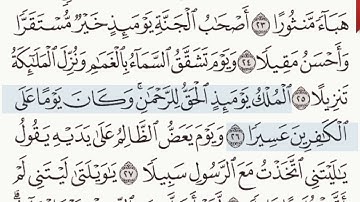 هَبَآءً مَّنثُورًا ٢٣ أَصْحَٰبُ ٱلْجَنَّةِ يَوْمَئِذٍ خَيْرٌ مُّسْتَقَرًّا
وَأَحْسَنُ مَقِيلًا ٢٤ وَيَوْمَ تَشَقَّقُ ٱلسَّمَآءُ بِٱلْغَمَٰمِ وَنُزِّلَ ٱلْمَلَٰٓئِكَةُ
تَنزِيلًا ٢٥ ٱلْمُلْكُ يَوْمَئِذٍ ٱلْحَقُّ لِلرَّحْمَٰنِ ۚ وَكَانَ يَوْمًا عَلَى
ٱلْكَٰفِرِينَ عَسِيرًا ٢٦ وَيَوْمَ يَعَضُّ ٱلظَّالِمُ عَلَىٰ يَدَيْهِ يَقُولُ
يَٰلَيْتَنِى ٱتَّخَذْتُ مَعَ ٱلرَّسُولِ سَبِيلًا ٢٧ يَٰوَيْلَتَىٰ لَيْتَنِى لَمْ